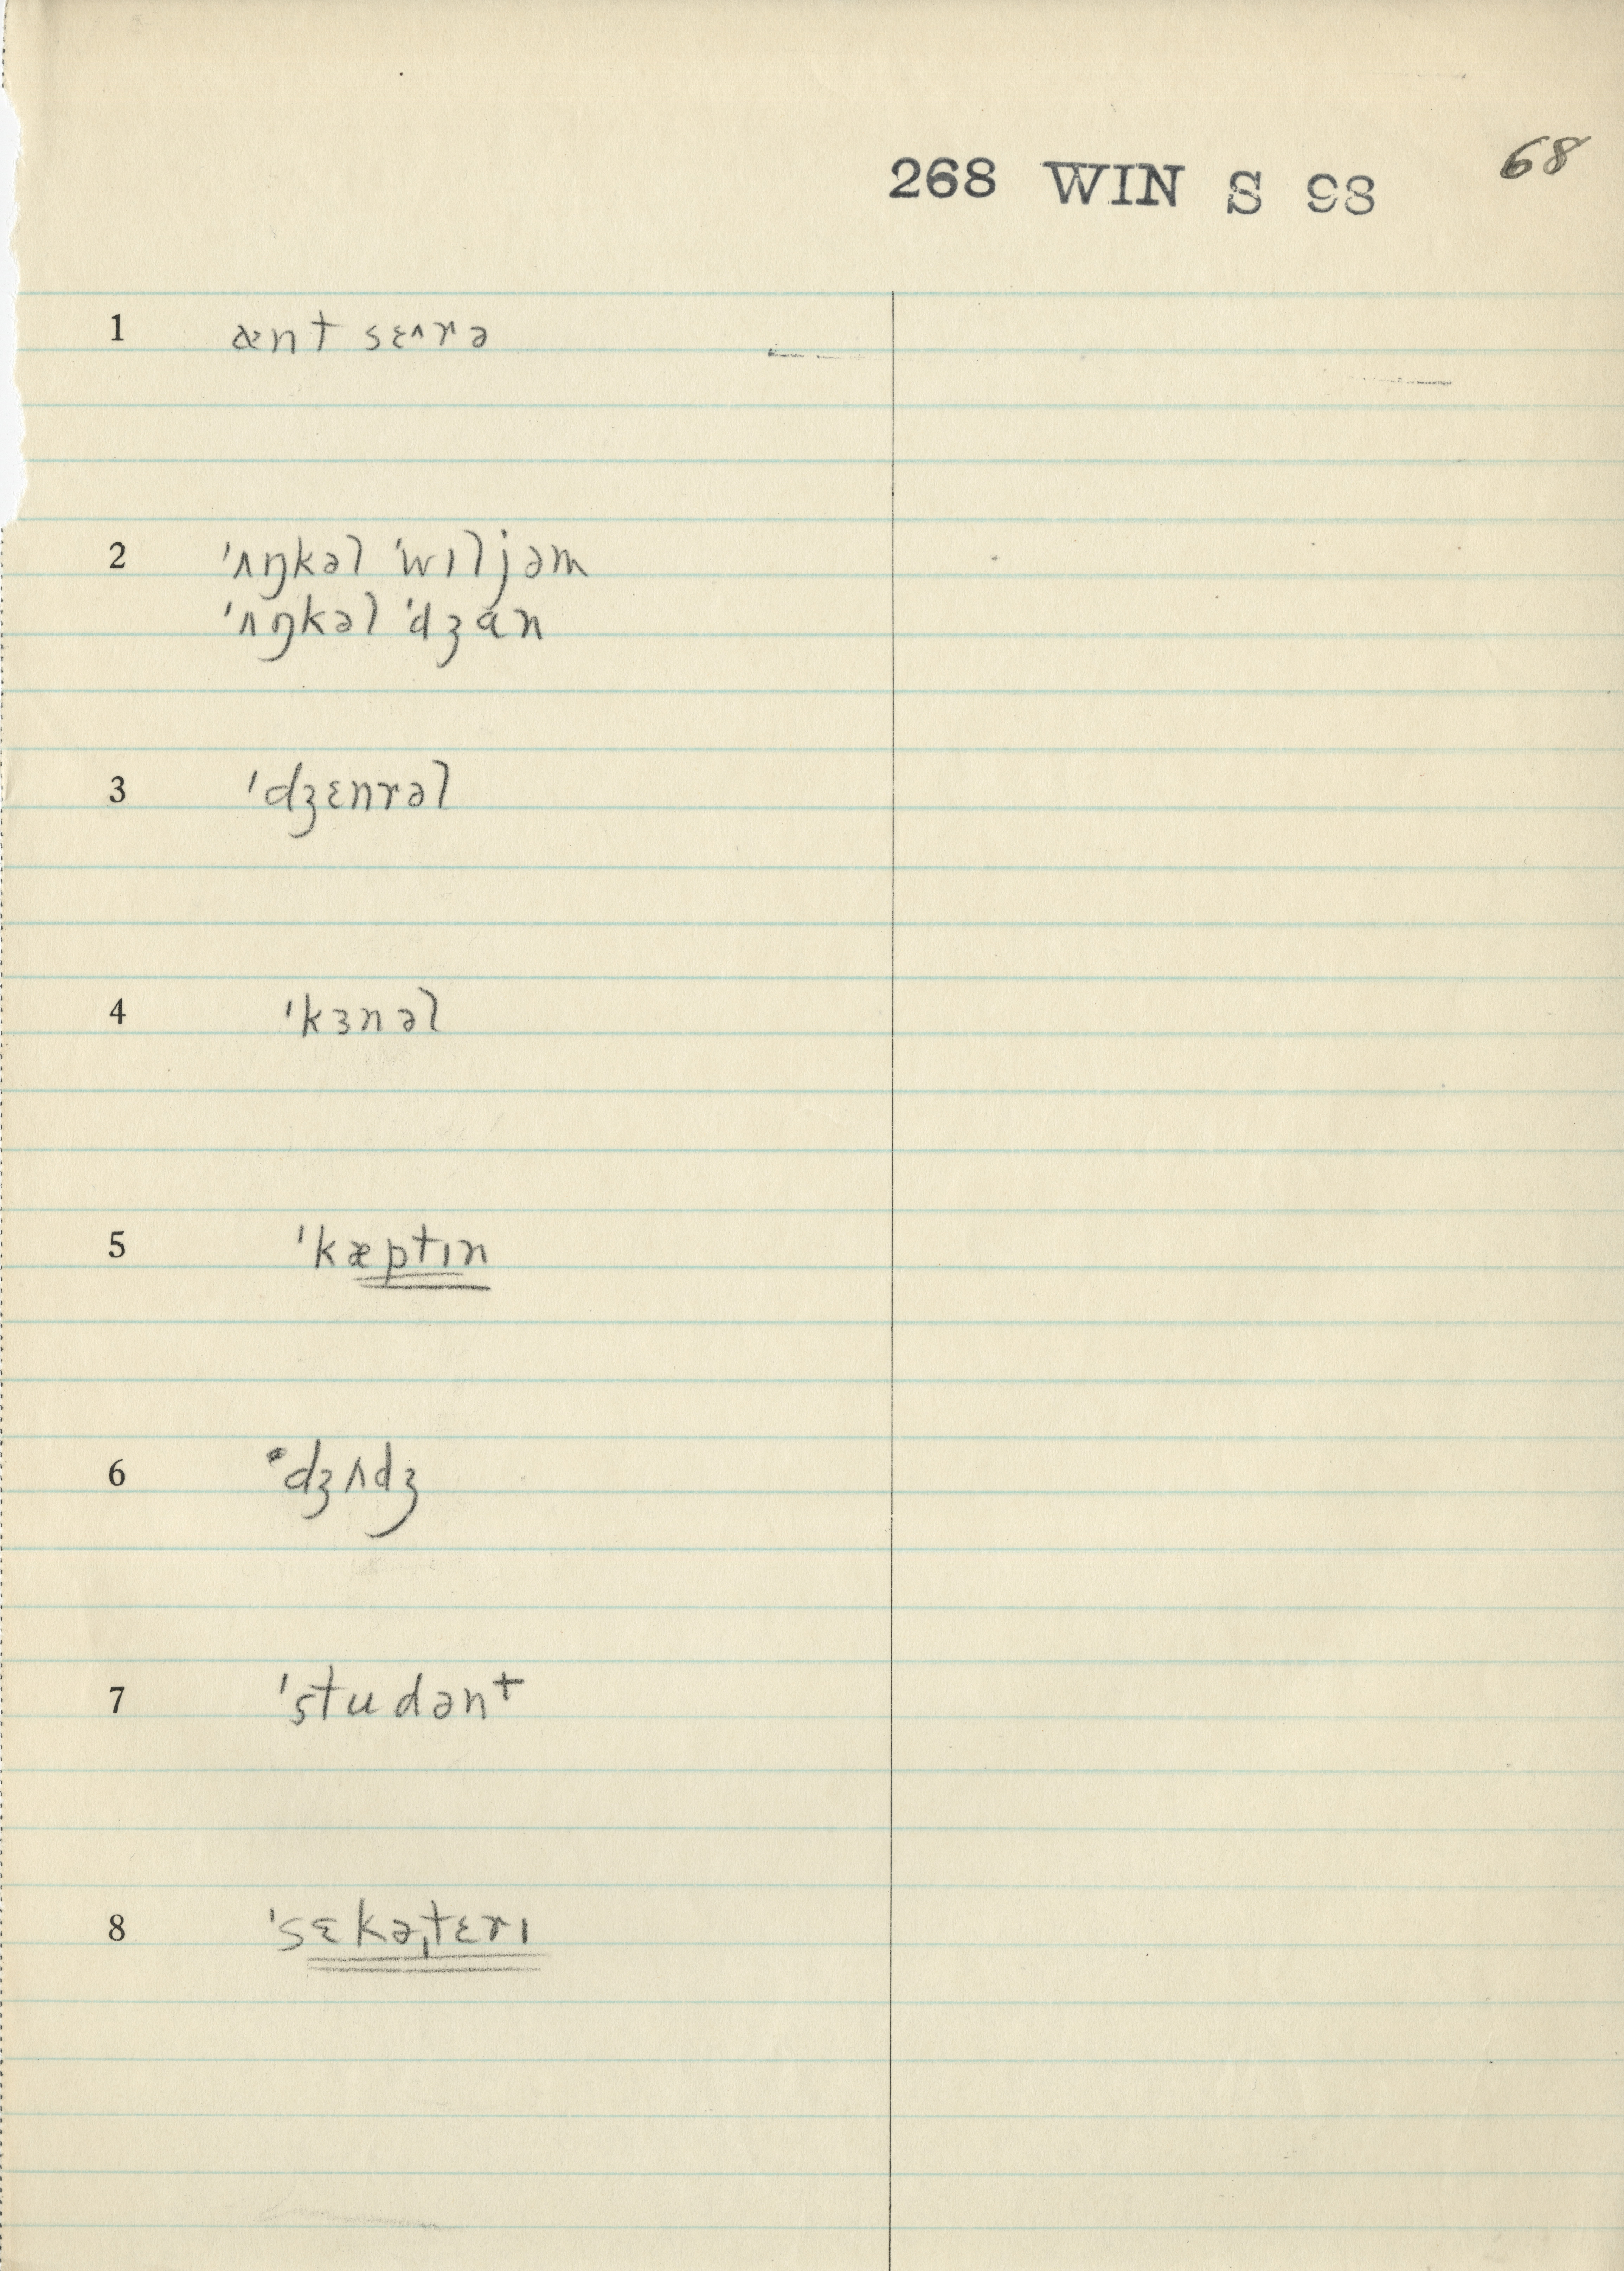 268 WIN S 98 68
1 ænt sɛ˄rə
2 ˈʌŋkəl ˈwɪljəm
ˈʌŋkəl ˈdʒɑn
3 ˈdʒɛnrəl
4 ˈkɜnəl
5 ˈkæptɪn
6 dʒʌdʒ
7 ˈstudənt
8 ˈsɛkəˌtɛrɪ